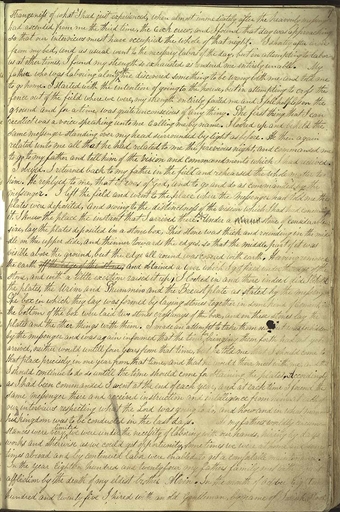 strangeness of what I had just experienced, when almost immediately after the heavenly messenger
had ascended from me the third time, the cock crew, and I found that day was approaching
so that our interviews must have occupied the whole of that night. I shortly after arose
from my bed, and as usual went to the necessary labors of the day, but in attempting to labor
as at other times, I found my strength so exhausted as rendered me entirely unable. My
father who was laboring along with me discovered something to be wrong with me and told me
to go home. I started with the intention of going to the house, but in attempting to cross the
fence out of the field where we were, my strength entirely failed me and I fell helpless on the
ground and for a time was quite unconscious of any thing. The first thing that I can
recollect was a voice speaking unto me calling me by name. I looked up and beheld the
same messenger standing over my head surrounded by light as before. He then again
related unto me all that he had related to me the previous night, and commanded me
to go to my father and tell him of the vision and commandments which I had received.
I obeyed I returned back to my father in the field and rehearsed the whole matter to
him. He replied to me, that it was of God, and to go and do as commanded by the
messenger. I left the field and went to the place where the messenger had told me the
plates were deposited, and owing to the distinctness of the vision which I had had concerning
it I knew the place the instant that I arrived there. Under a stone of considerable
size, lay the plates deposited in a stone box. This stone was thick and rounding in the
middle on the upper side, and thinner towards the edges, so that the middle part of it was
visible above the ground, but the edge all round was covered with earth. Having removed
the earth and obtained a lever which I got fixed under the edge of the
stone and with a little exertion raised it up, I looked in and there indeed did I behold
the plates, the Urim and Thummim and the Breastplate as stated by the messenger
The box in which they lay was formed by laying stones together in
the bottom of the box were laid two stones crossways of the box, and on these stones lay the
plates and the other things with them. I made an attempt to take them out but was forbidden
by the messenger and was again informed that the time for bringing them forth had not
arrived, neither would until four years from that time, but he told me
that place precisely in one year from that time, and that he would there meet with me, and that I
should continue to do so until the time should come for obtaining the plates. Accordingly
as I had been commanded I went at the end of each year, and at each time I found the
same messenger there and received instruction and intelligence from him at each of
our interviews respecting what the Lord was going to do, and how and in what manner his
kingdom was to be conducted in the last days. As my father's worldly circum-
stances were very limited we were under the necessity of laboring with our hands, hiring by days
works and otherwise as we could get opportunity, sometimes we were at home and some
times abroad and by continued labor were enabled to get a comfortable
In the year eighteen hundred and twenty four my father's family met with a great
affliction by the death of my eldest brother Alvin. In the month of October Eighteen
hundred and twenty five I hired with an old gentleman, by name of Josiah Stoal